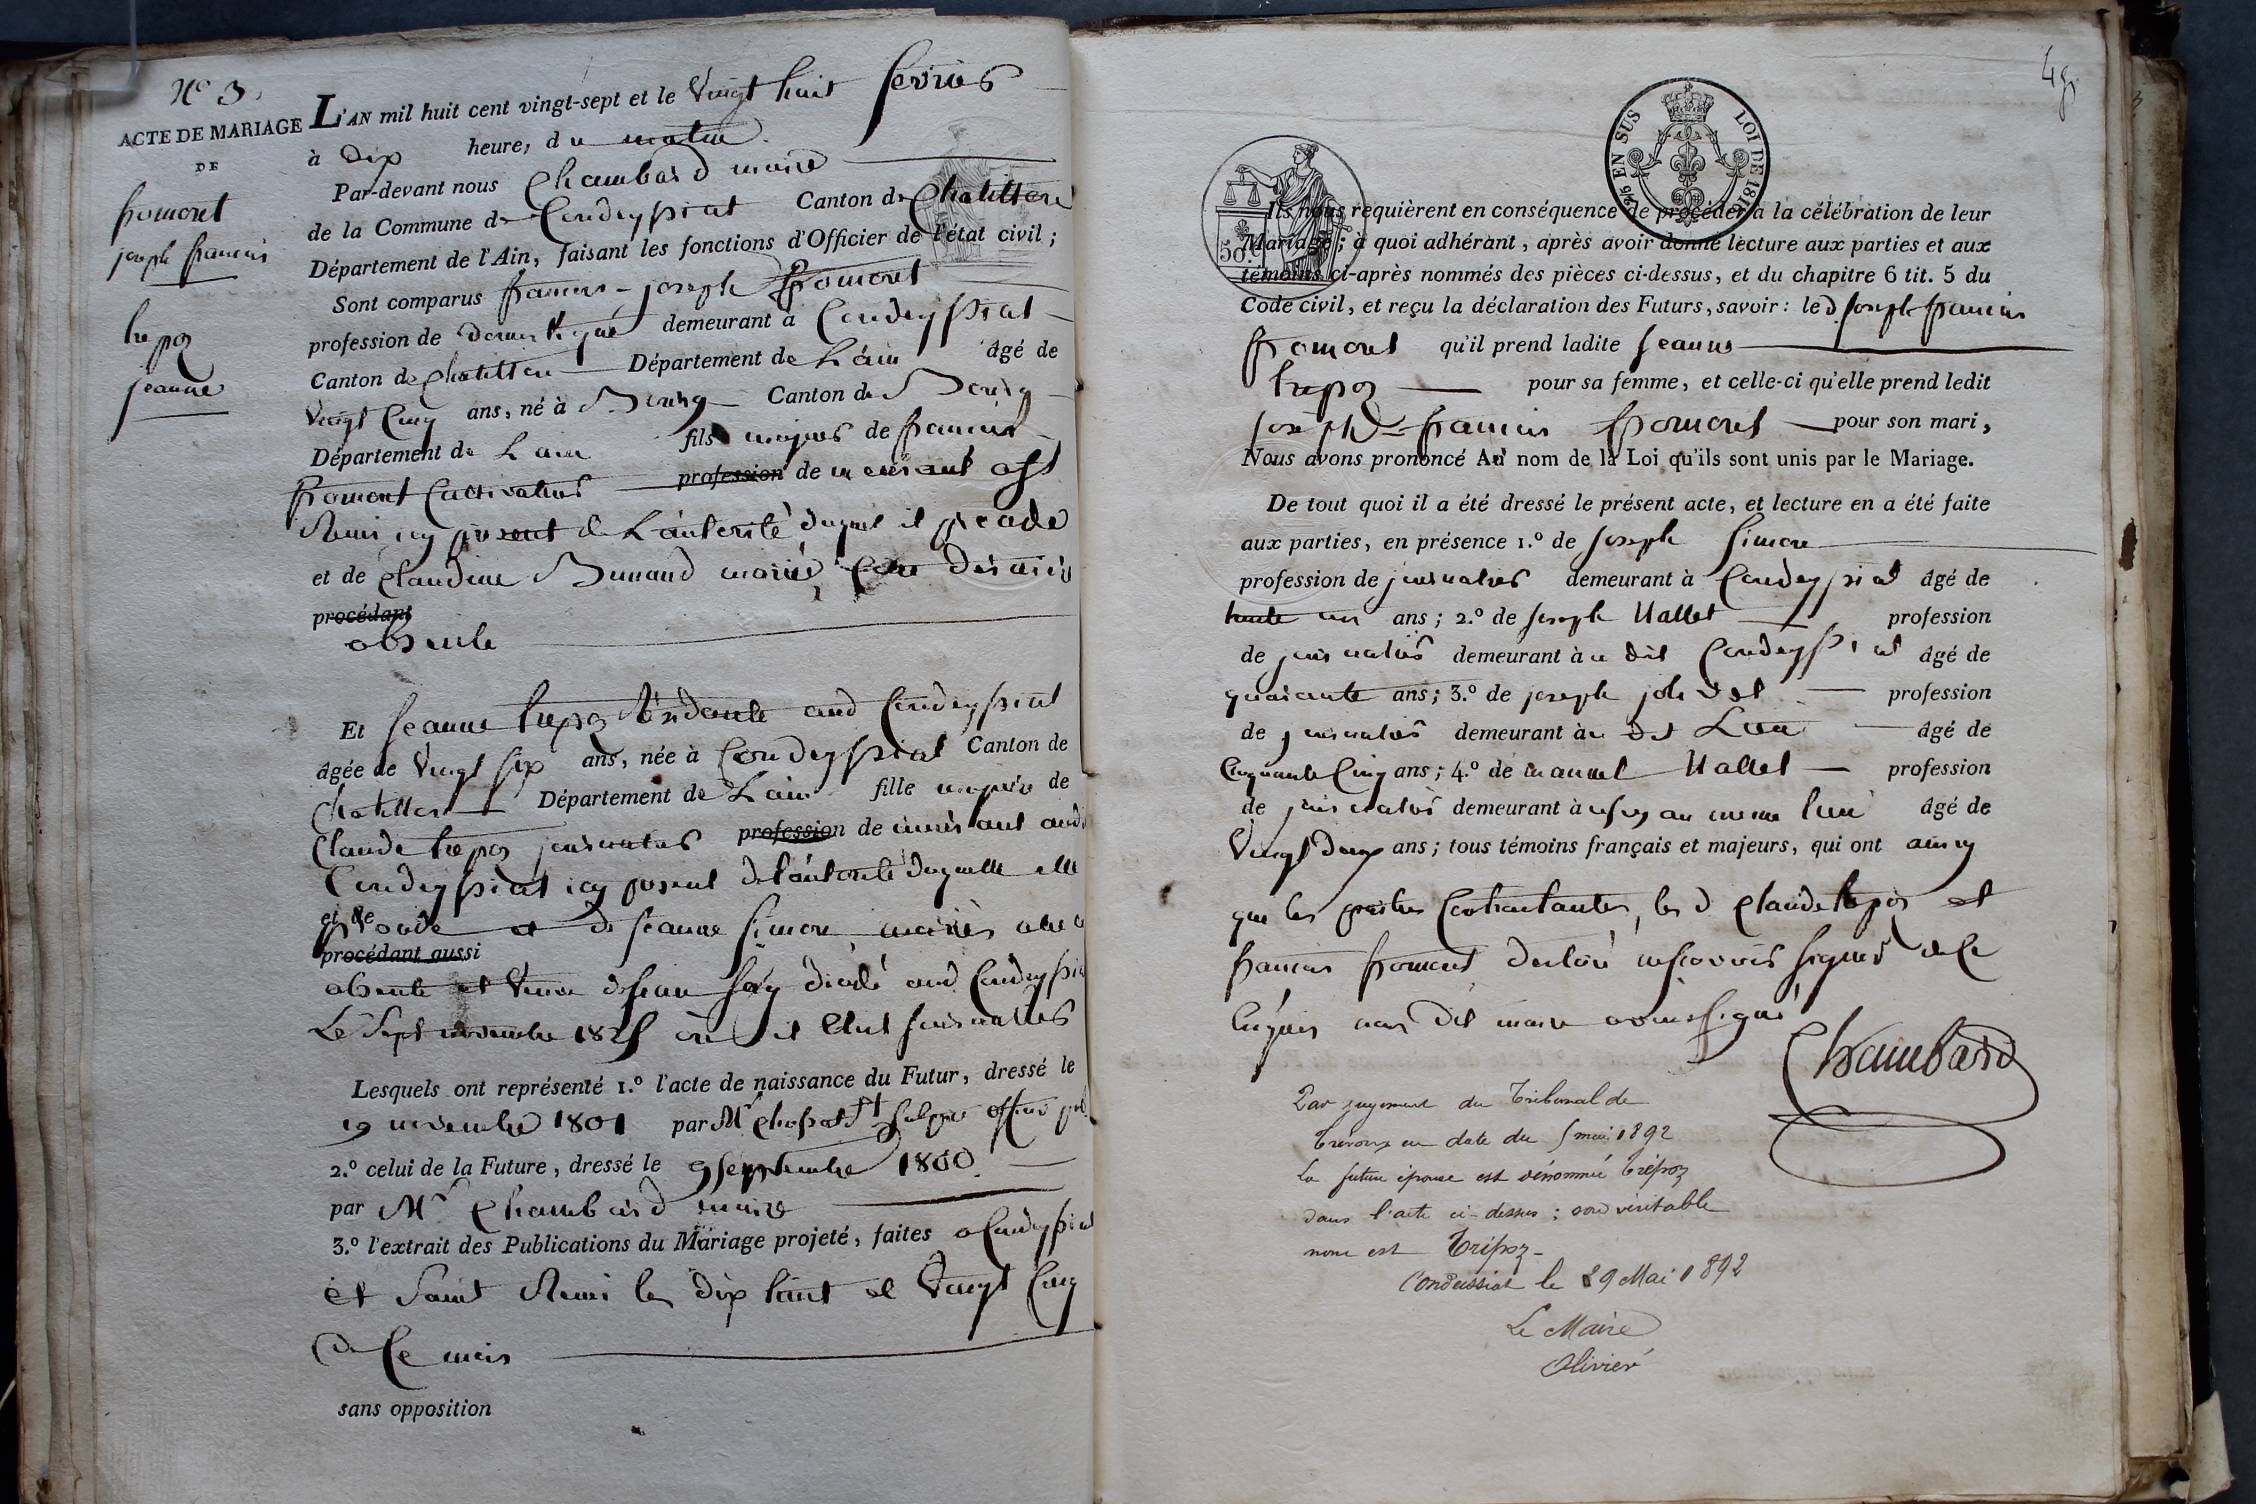 N° 3.
ACTE DE MARIAGE
DE
fromont
joseph francois
trepoz
jeanne
L'AN mil huit cent vingt-sept et le Vingt huit fevrier
à Dix heure, du matin
Par-devant nous Chambard maire
de la Commune de Condeyssiat Canton de Chatillon
Département de l'Ain, faisant les fonctions d'Officier de l'état civil;
Sont comparus francois - joseph fromont
profession de domestique demeurant à Condeyssiat
Canton de Chatillon Département de L'ain âgé de
Vingt Cinq ans, né à Bourg Canton de Bourg
Département de L'ain fils majeur de francois
fromont Cultivateur profession de meurant a St
Remi icy present de L'autorité duquel il procede
et de Claudine Bunand mariés, Cette dernière
procédant
absente
Et jeanne trepoz Residante aud Condeyssiat
âgée de Vingt six ans, née à Condeyssiat Canton de
Chatillon Département de L'ain fille majeure de
Claude trepoz journalier profession de meurant aud
Condeyssiat icy present de l'autorité duquel elle
et de
procede et de jeanne Simon mariés
procédant aussi
absente et Veuve de jean decédé aud Condeyssiat
Le Sept novembre 1825 où il Etoit journalier
Lesquels ont représenté 1.° l'acte de naissance du Futur, dressé le
19 novembre 1801 par Mr
2.° celui de la Future, dressé le 9 Septembre 1800
par Mr Chambard maire
3.° l'extrait des Publications du Mariage projeté, faites a Condeyssiat
et Saint Remi les dix huit et Vingt Cinq
de Ce mois
sans opposition
48
24/5 EN SUS LOI DE 1816
50.c
Ils nous requièrent en conséquence de procéder à la célébration de leur
Mariage; à quoi adhérant, après avoir donné lecture aux parties et aux
témoins ci-après nommés des pièces ci-dessus, et du chapitre 6 tit. 5 du
Code civil, et reçu la déclaration des Futurs, savoir: le d joseph francois
fromont qu'il prend ladite jeanne
trepoz pour sa femme, et celle-ci qu'elle prend ledit
joseph - francois fromont pour son mari,
Nous avons prononcé Au nom de la Loi qu'ils sont unis par le Mariage.
De tout quoi il a été dressé le présent acte, et lecture en a été faite
aux parties, en présence 1.° de joseph Simon
profession de journalier demeurant à Condeyssiat âgé de
trente un ans; 2.° de joseph Vallet profession
de journalier demeurant à u dit Condeyssiat âgé de
quarante ans; 3.° de joseph profession
de journalier demeurant à u dit Lieu âgé de
Cinquante Cinq ans; 4.° de manuel Vallet profession
de journalier demeurant à au meme lieu âgé de
Vingt deux ans; tous témoins français et majeurs, qui ont ainsy
que les parties Contractantes, les d Claude trepoz et
francois fromont declaré ne scavoir signer de Ce
Enquis nous dit maire avons signé
Chambard
Par jugement du Tribunal de
Trévoux en date du 5 mai 1892
La future épouse est dénommée Trépoz
dans l'acte ci-dessus; son véritable
nom est Trépoz -
Condeissiat le 29 Mai 1892
Le Maire
Olivier